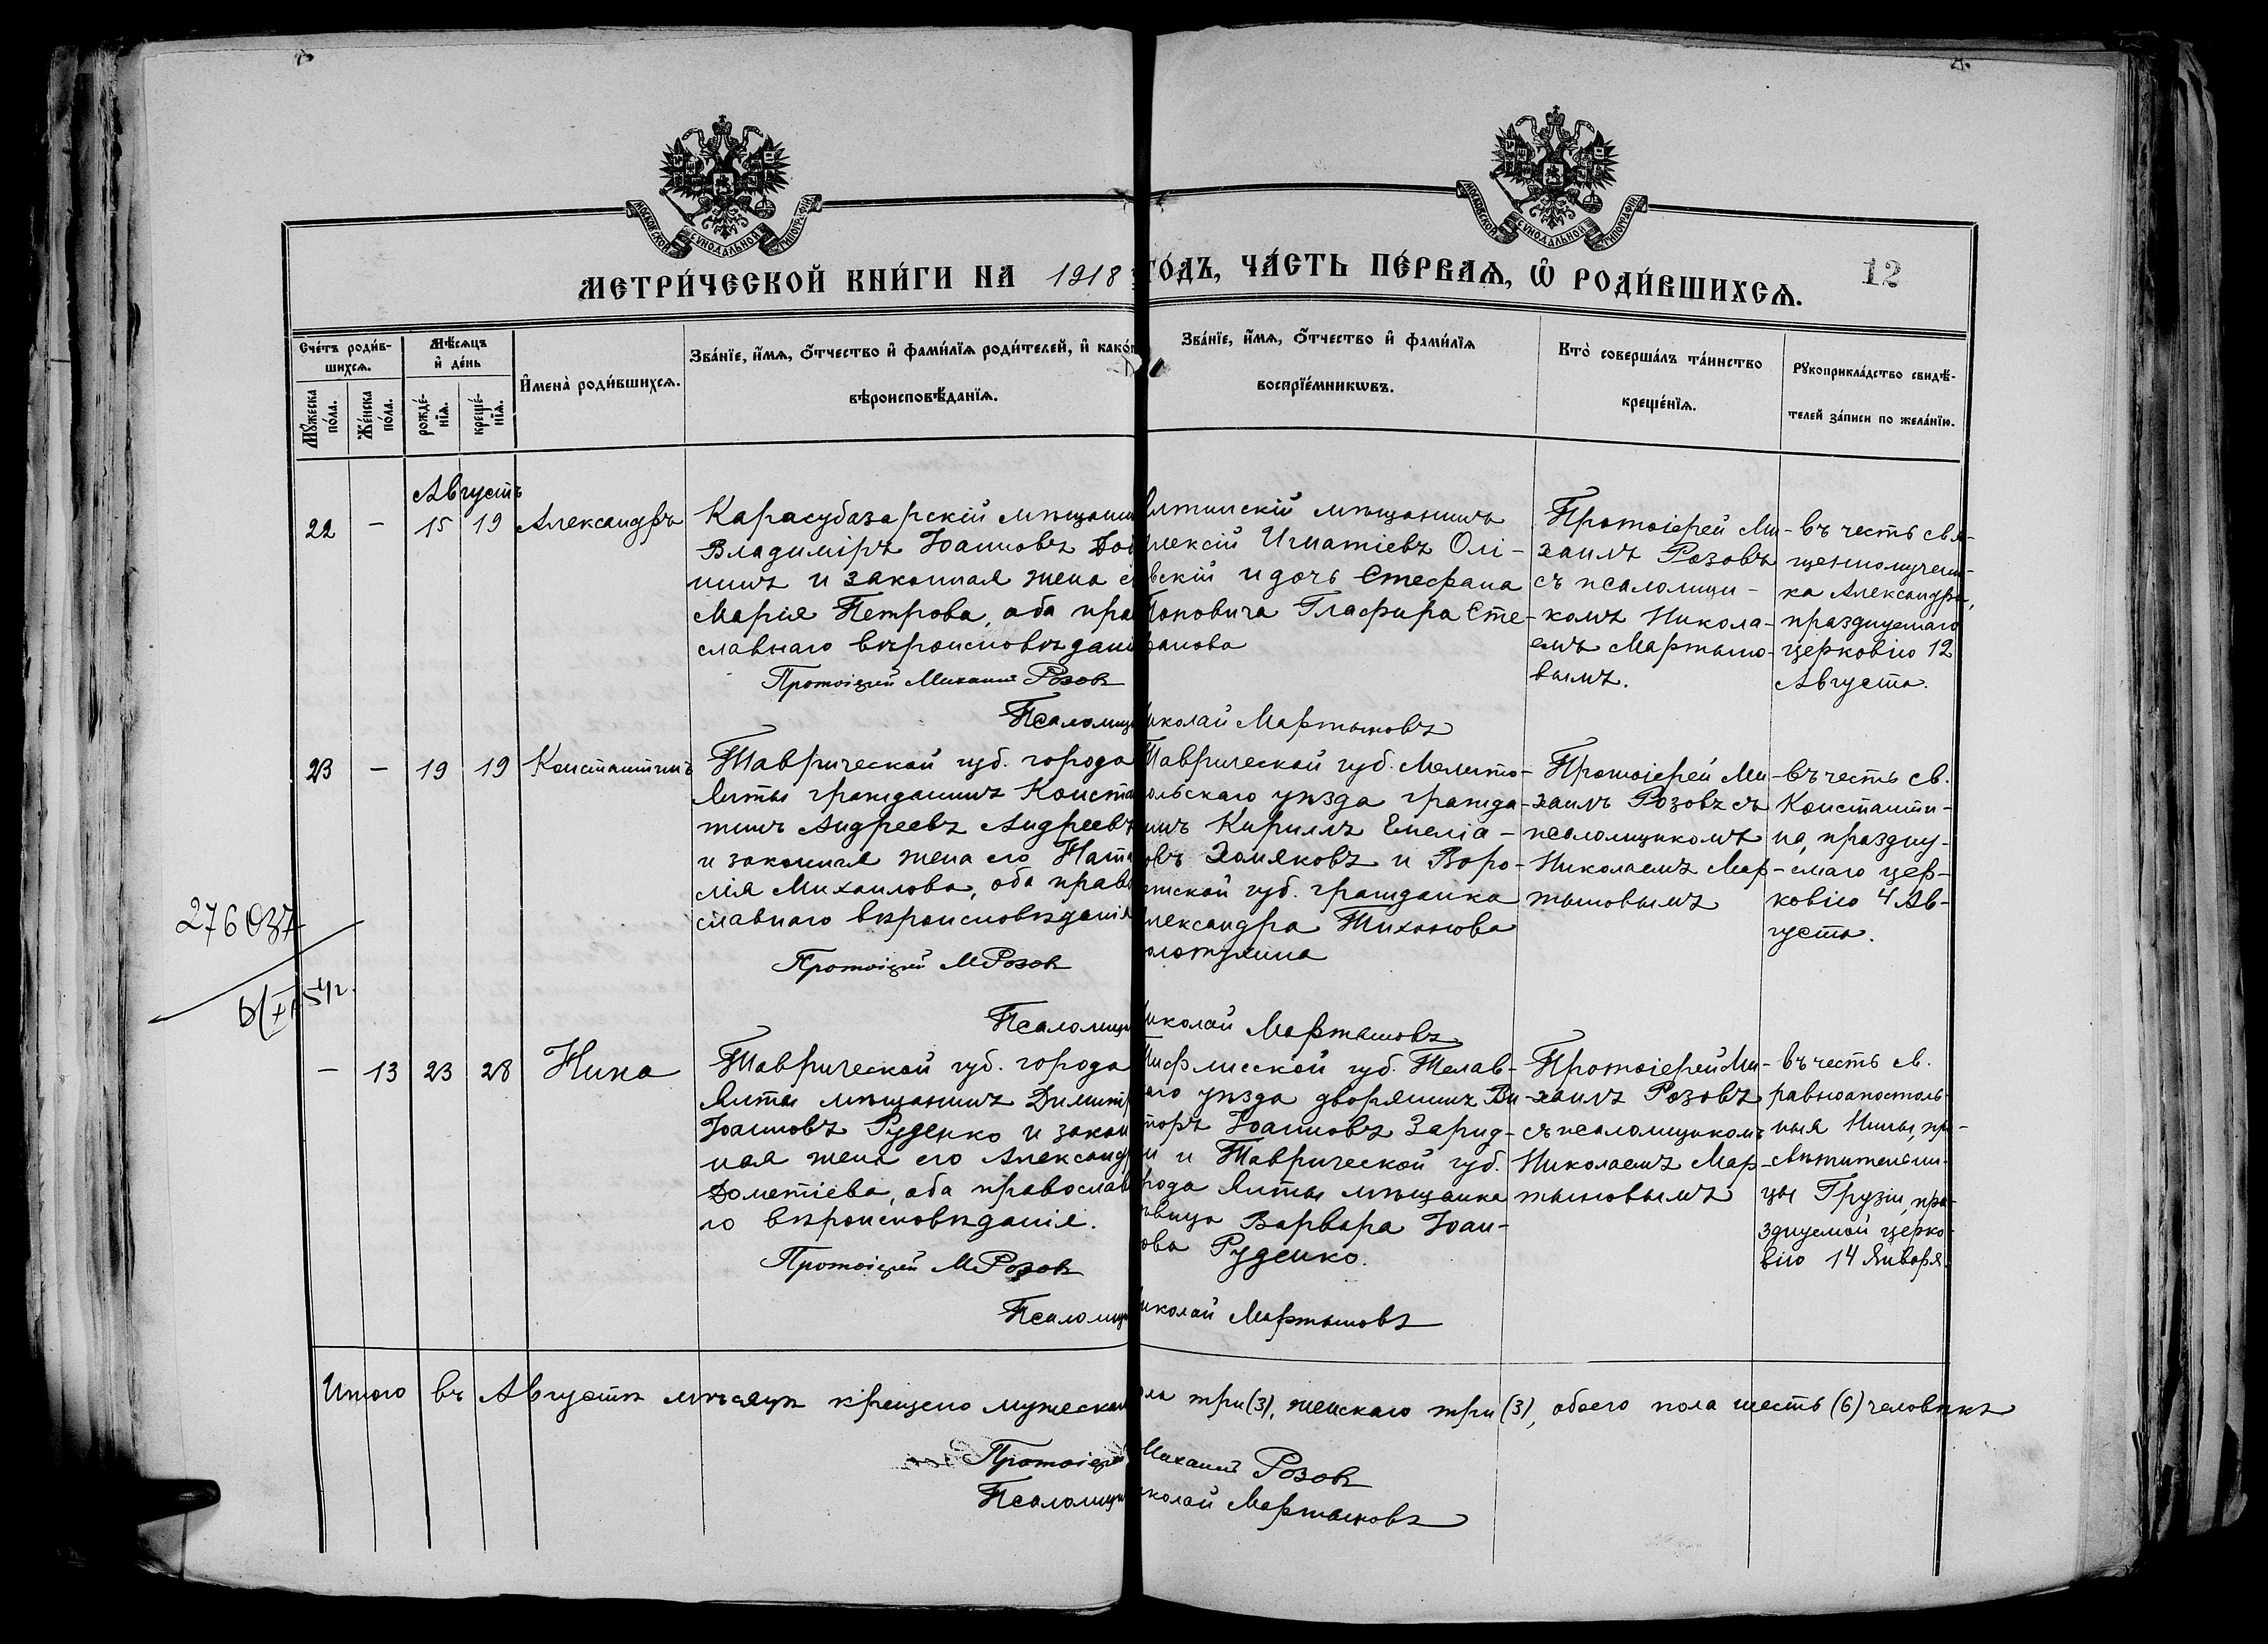 МОСКОВСКОЙ СѴНОДАЛЬНОЙ ТИПОГРАФІИ
МОСКОВСКОЙ СѴНОДАЛЬНОЙ ТИПОГРАФІИ
МЕТРИ́ЧЕСКОЙ КНИ́ГИ НА 1918 ГО́ДЪ, ЧА́СТЬ ПЕ́РВАѦ, Ѡ҆ РОДИ́ВШИХСѦ.
12
Сче́тъ роди́в-
шихсѧ.
Мꙋ́жеска по́ла.
Же́нска по́ла.
Мѣ́сѧцъ и҆ де́нь
рожде́-нїѧ.
креще́-нїѧ.
И҆мена̀ роди́вшихсѧ.
Зва́нїе, и҆́мѧ, ѻ҆́тчество и҆ фами́лїѧ роди́телей, и҆ како́г
вѣроисповѣ́данїѧ.
Зва́нїе, и҆́мѧ, ѻ҆́тчество и҆ фами́лїѧ
воспрїе́мникѡвъ.
Кто̀ соверша́лъ та́инство
креще́нїѧ.
Рꙋкоприкла́дство свидѣ́-
телей за́писи по жела́нїю.
Августъ
22 - 15 19 Александръ
Карасубазарскій мѣщанин
Владиміръ Іоанновъ
нинъ и законная жена е
Марія Петрова, оба пра
славнаго вѣроисповѣдані
Протоіерей Михаилъ Розовъ
Псаломщ
лтинскій мѣщанинъ
лексій Игнатіевъ Олі-
вскій и дочь Стефана
Поповича Глафира Сте-
фанова
иколай Мартыновъ
Протоіерей Ми-
хаилъ Розовъ
съ псаломщи-
комъ Никола-
емъ Мартыно-
вымъ.
въ честь свя-
щенномучени-
ка Александра,
празднуемаго
церковію 12
Августа.
23 - 19 19 Константинъ
Таврической губ. города
Ялты гражданинъ Конста
тинъ Андреевъ Андреевъ
и законная жена его Ната
лія Михаилова, оба право
славнаго вѣроисповѣданія
Протоіерей М Розовъ
Псаломщи
Таврической губ. Мелито-
ольскаго уѣзда гражда-
инъ Кириллъ Емеліа-
овъ Хомяковъ и Воро-
жской губ. гражданка
лександра Тихонова
олотухина
иколай Мартыновъ
Протоіерей Ми-
хаилъ Розовъ съ
псаломщикомъ
Николаемъ Мар-
тыновымъ
въ честь св.
Константи-
на, праздну-
емаго цер-
ковію 4 Ав-
густа.
276037
6/XI 54г.
- 13 23 28 Нина
Таврической губ. города
Ялты мѣщанинъ Димитр
Іоанновъ Руденко и закон
ная жена его Александ
Дометіева, оба православ
го вѣроисповѣданія.
Протоіерей М Розовъ
Псаломщ
Тифлисской губ. Телав-
аго уѣзда дворянинъ Ви-
торъ Іоанновъ Зарид-
и и Таврической губ.
рода Ялты мѣщанка
вица Варвара Іоан-
ова Руденко.
иколай Мартыновъ
Протоіерей Ми-
хаилъ Розовъ
съ псаломщикомъ
Николаемъ Мар-
тыновымъ
въ честь св.
равноапостоль-
ныя Нины, про-
свѣтительни-
цы Грузіи, пра-
зднуемой церко-
вію 14 Января.
Итого въ Августѣ мѣсяцѣ крещено мужеска ола три (3), женскаго три (3), обоего пола шесть (6) человѣкъ
Протоіерей Михаилъ Розовъ
Псаломщи иколай Мартыновъ